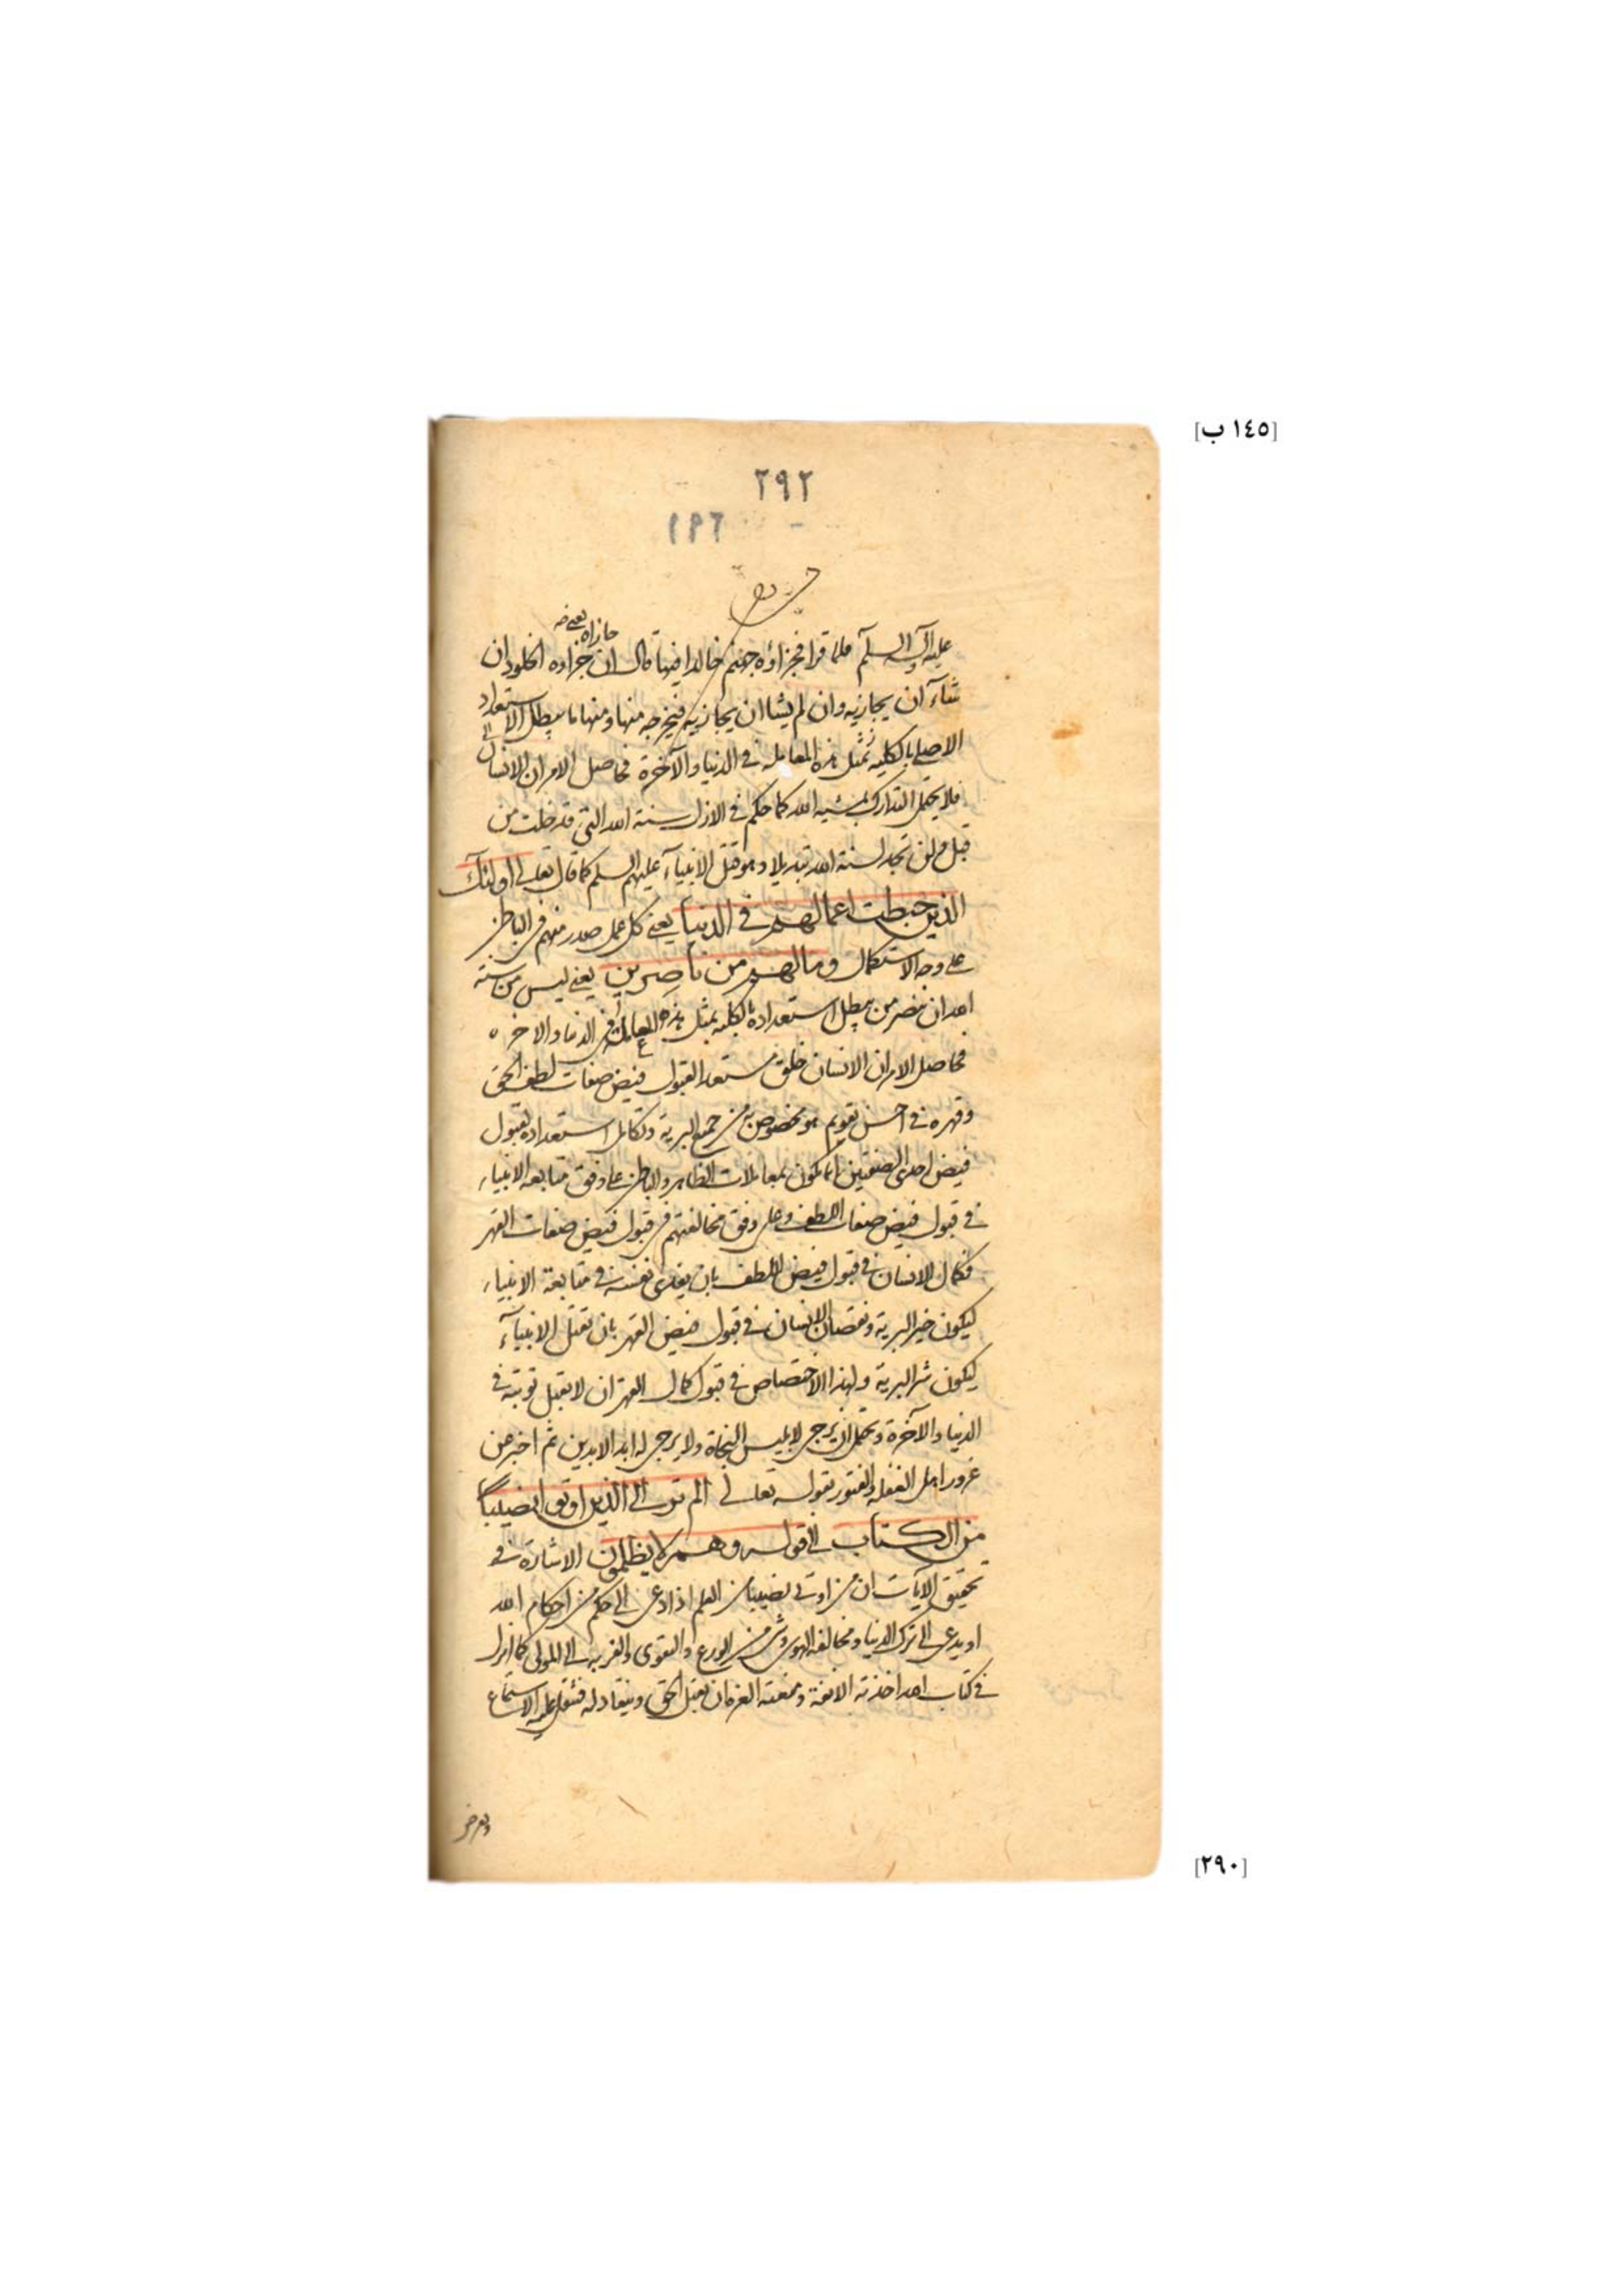 [١٤٥ ب]
٢٩٢
عليه السلم فلما قرا فجزاؤه جهنم خالدا فيها قال ان جزاه الخلود ان
جازاه يعني
شآء ان يجازيه وان لم يشا ان يجازيه فيخرجه منها ومنها ما يبطل الاستعداد
الاصلى بالكلية بمثل هذه المعاملة فى الدنيا والآخرة فحاصل الامر ان الانسان
فلا يحتمل التدارك بمشية الله كما حكم فى الازل سنة الله التى قد خلت من
قبل ولن تجد لسنة الله تبديلا وهو قتل الانبيآء عليهم السلم كما قال تعالى اولئك
الذين حبطت اعمالهم فى الدنيا يعنى كل عمل صدر منهم فى الباطن
على وجه الاستكمال وما لهم من ناصرين يعنى ليس من سنة
الله ان ينصر من يبطل استعداده بالكلية بمثل هذه المعاملة فى الدنيا والاخرة
فحاصل الامر ان الانسان خلق مستعد القبول فيض صفات لطف الحق
وقهره فى احسن تقويم هو مخصوص به من جميع البرية وتكامل استعداده لقبول
فيض احدى الصفتين انما يكون بمعاملات الظاهر والباطن على وفق متابعة الانبياء
فى قبول فيض صفات اللطف وعلى وفق مخالفتهم فى قبول فيض صفات القهر
فكمال الانسان فى قبول فيض اللطف بان يفدى نفسه فى متابعة الانبياء
ليكون خير البرية ونقصان الانسان فى قبول فيض القهر بان تقتل الانبيآء
ليكون شر البرية ولهذا الاختصاص فى قبول كمال القهر ان لا تقبل توبته فى
الدنيا والآخرة ويحتمل ان يرجى لابليس النجاة ولا يرجى له ابد الابدين ثم اخبر عن
غرور اهل الغفلة والفتور بقوله تعالى الم تر الى الذين اوتوا نصيبا
من الكتاب الى قوله وهم لا يظلمون الاشارة فى
تحقيق الآيات ان من اوتى نصيبا من العلم اذا دعى الى حكم من احكام الله
او يدعى الى ترك الدنيا ومخالفة الهوى وشى من الورع والتقوى والقربة الى المولى كما انزل
فى كتاب الله اخذته الانفة ومنعته العزة ان يقبل الحق وينقاد له فثقل عليه الاستماع
[٢٩٠]